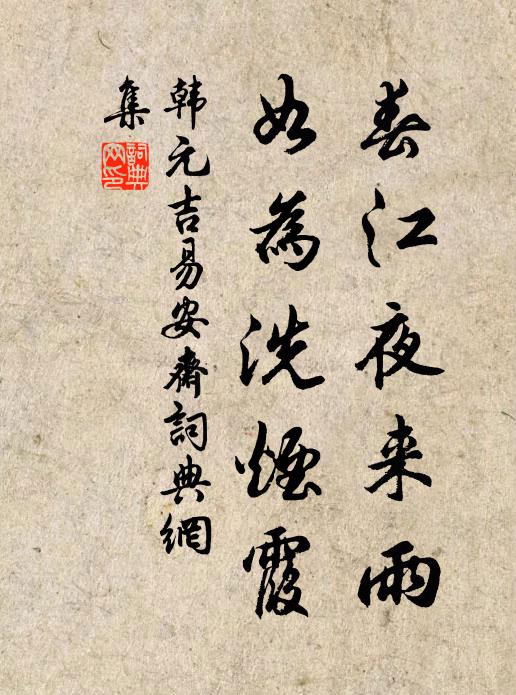 春江夜来雨
如為洗煙霞
韩元吉易安齋詞典網
集
詞典
网印